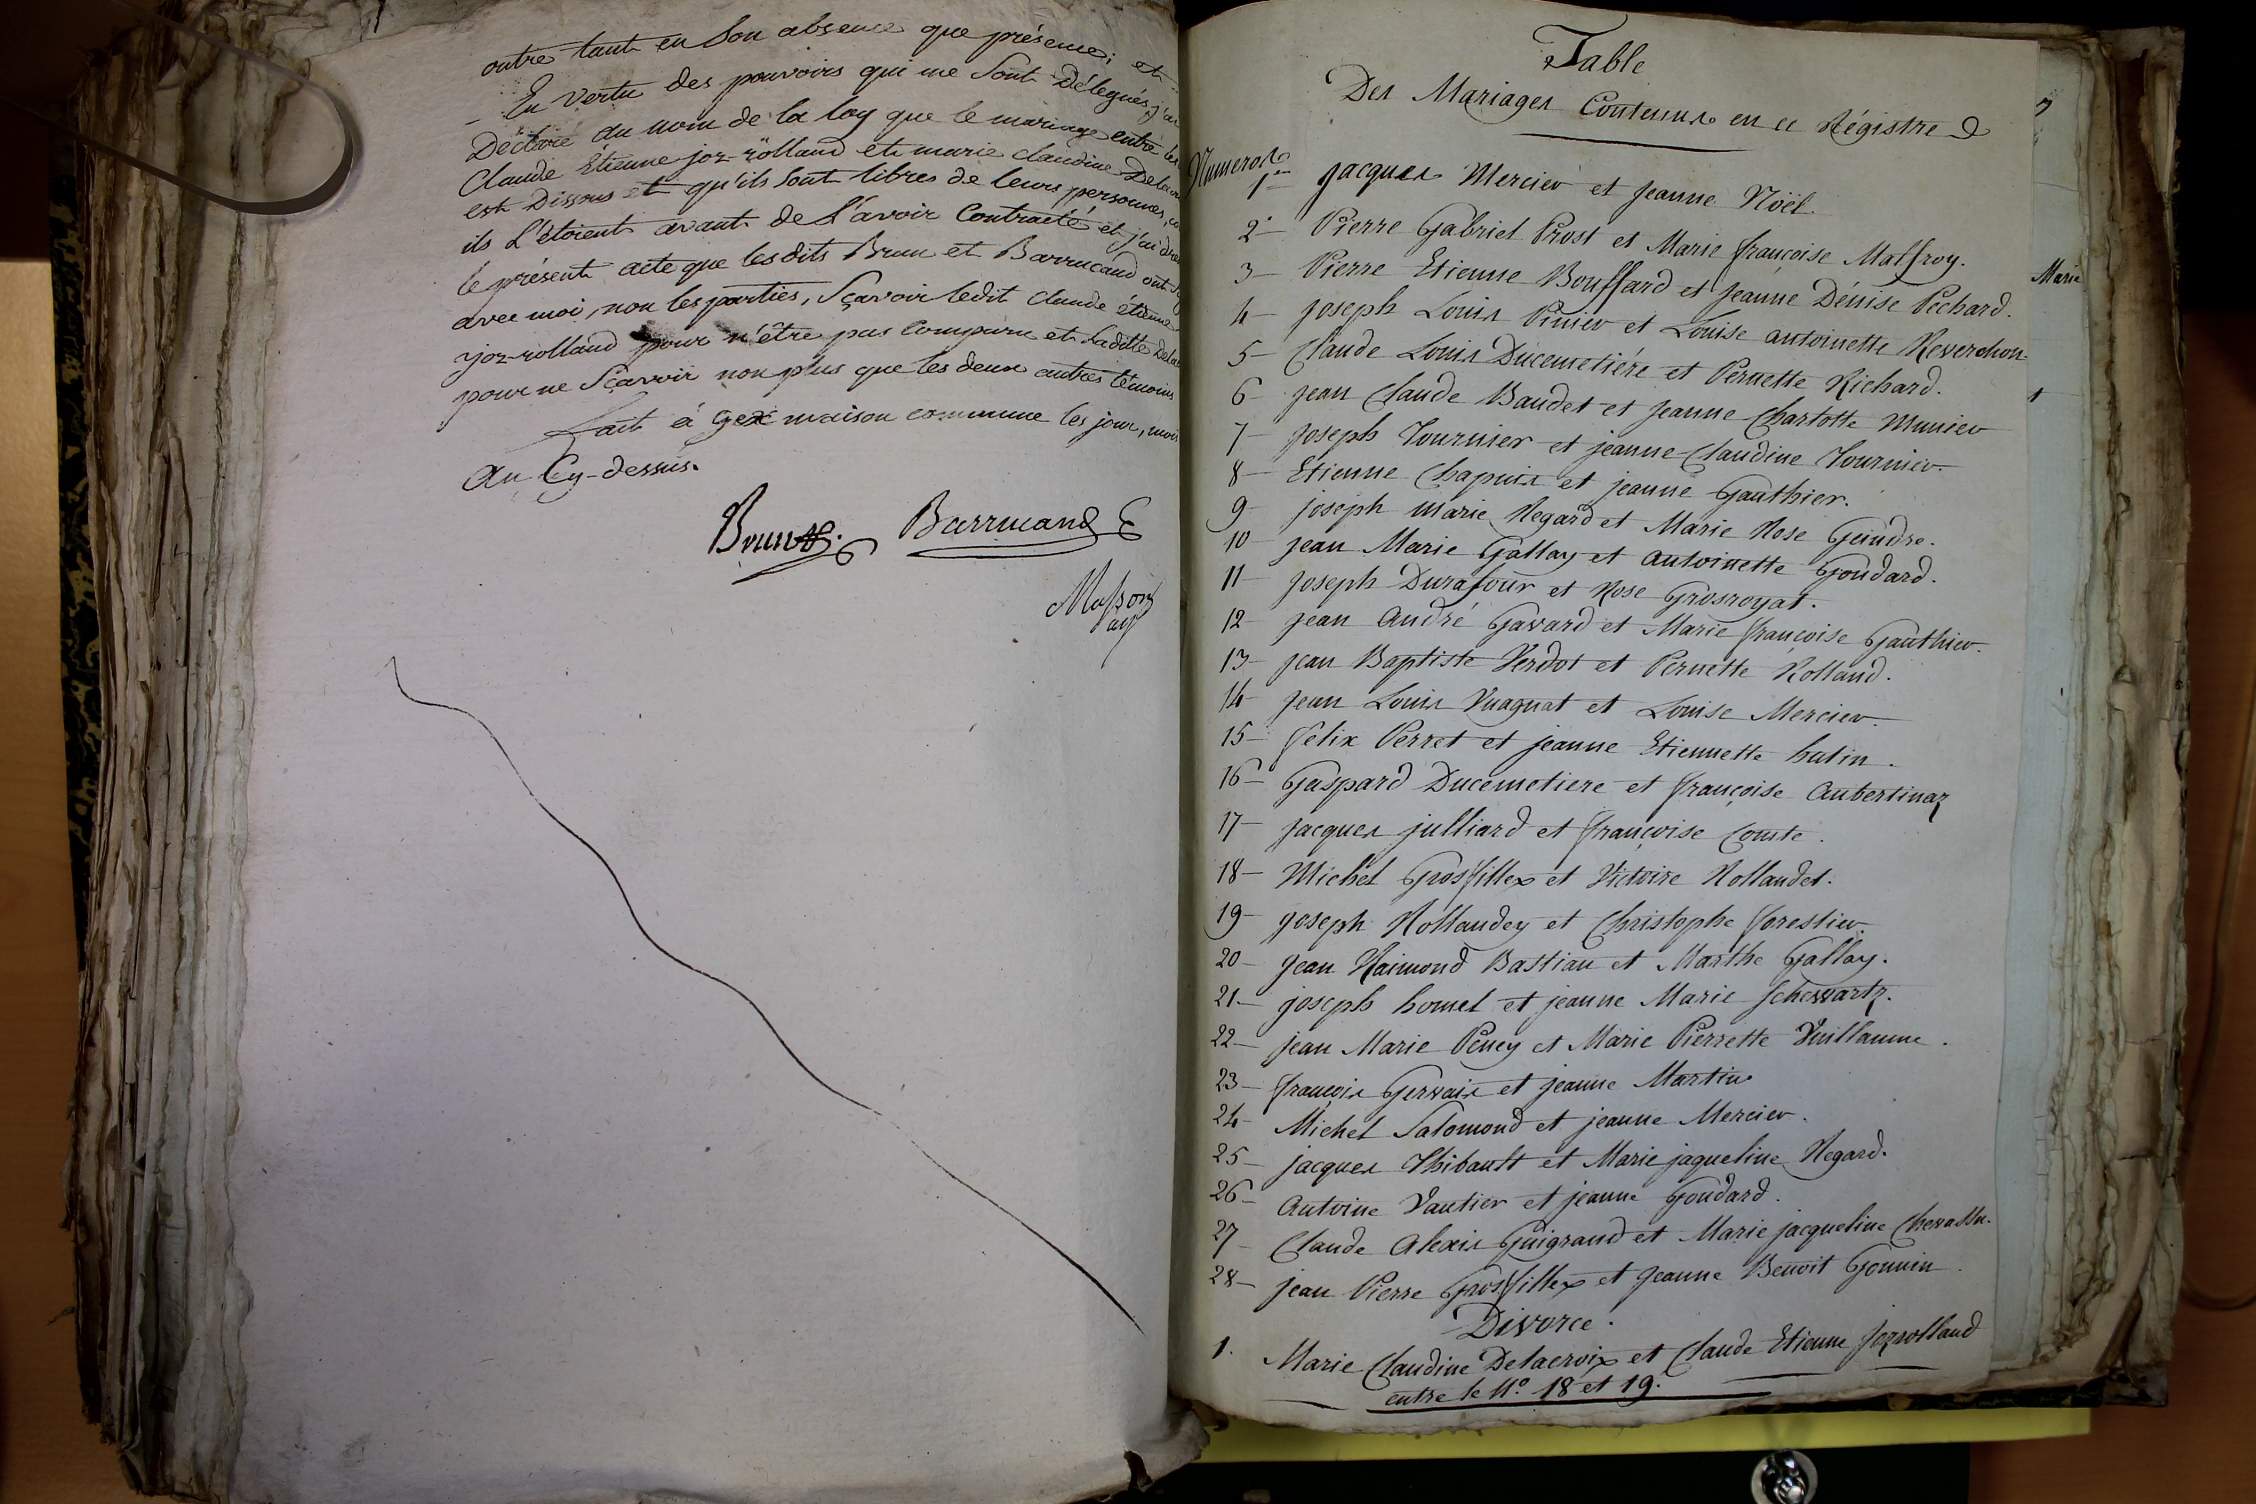 outre tant en son absence que présence; et
En vertu des pouvoirs qui me sont Délegués, j'ai
Déclaré au nom de la loy que le mariage entre les
Claude Étienne joz-rolland et marie claudine Delacr
est Dissous et qu'ils sont libres de leurs personnes, co
ils L'étoient avant de L'avoir Contracté et j'ai dre
le présent acte que lesdits Brun et Barrucand ont
avec moi, non les parties, Sçavoir ledit Claude étienne
joz-rolland pour n'être pas Comparu et Laditte Dela
pour ne Sçavoir non plus que les deux autres témoins
fait à gex maison commune les jour, mois
an Cy-dessus.
Brun Barrucand
Masson
Table
Des Mariages Contenus en ce Régistre
Numeros
1er Jacques Mercier et Jeanne Nöël.
2 - Pierre Gabriel Prost et Marie françoise Malfroy.
3 - Pierre Etienne Bouffard et Jeanne Dénise Péchard.
4 - Joseph Louis Prinier et Louise antoinette Reverchon
5 - Claude Louis Ducemetiére et Pernette Richard.
6 - Jean Claude Baudet et Jeanne Charlotte Munier
7 - Joseph Tournier et jeanne Claudine Tournier.
8 - Etienne Chapuis et jeanne Gauthier.
9 - joseph marie Regard et Marie Rose Geindre.
10 - jean Marie Gallay et antoinette Goudard.
11 - Joseph Durafour et Rose Grosroyat.
12 - jean andré Gavard et Marie françoise Gauthier.
13 - jean Baptiste Verdot et Pernette Rolland.
14 - Jean Louis Vuagnat et Louise Mercier.
15 - félix Perret et jeanne Etiennette hutin.
16 - Gaspard Ducemetiere et françoise aubertinaz
17 - Jacques julliard et françoise Comte.
18 - Michel Grosfillex et Victoire Rollandet.
19 - Joseph Rollandey et Christophe forestier.
20 - Jean Raimond Bastian et Marthe Gallay.
21 - joseph homel et jeanne Marie Schewartz.
22 - Jean Marie Péney et Marie Pierrette Vuillaume.
23 - françois Gervais et jeanne Martin
24 - Michel Salomond et jeanne Mercier.
25 - jacques Thibault et Marie jaqueline Regard.
26 - antoine Vautier et jeanne Goudard.
27 - Claude alexis Guigrand et Marie jacqueline Chevassu.
28 - jean Pierre Grosfillex et Jeanne Benoit Gonnin.
Divorce.
1. Marie Claudine Delacroix et Claude Etienne Jozrolland
entre le N.° 18 et 19.
Marie